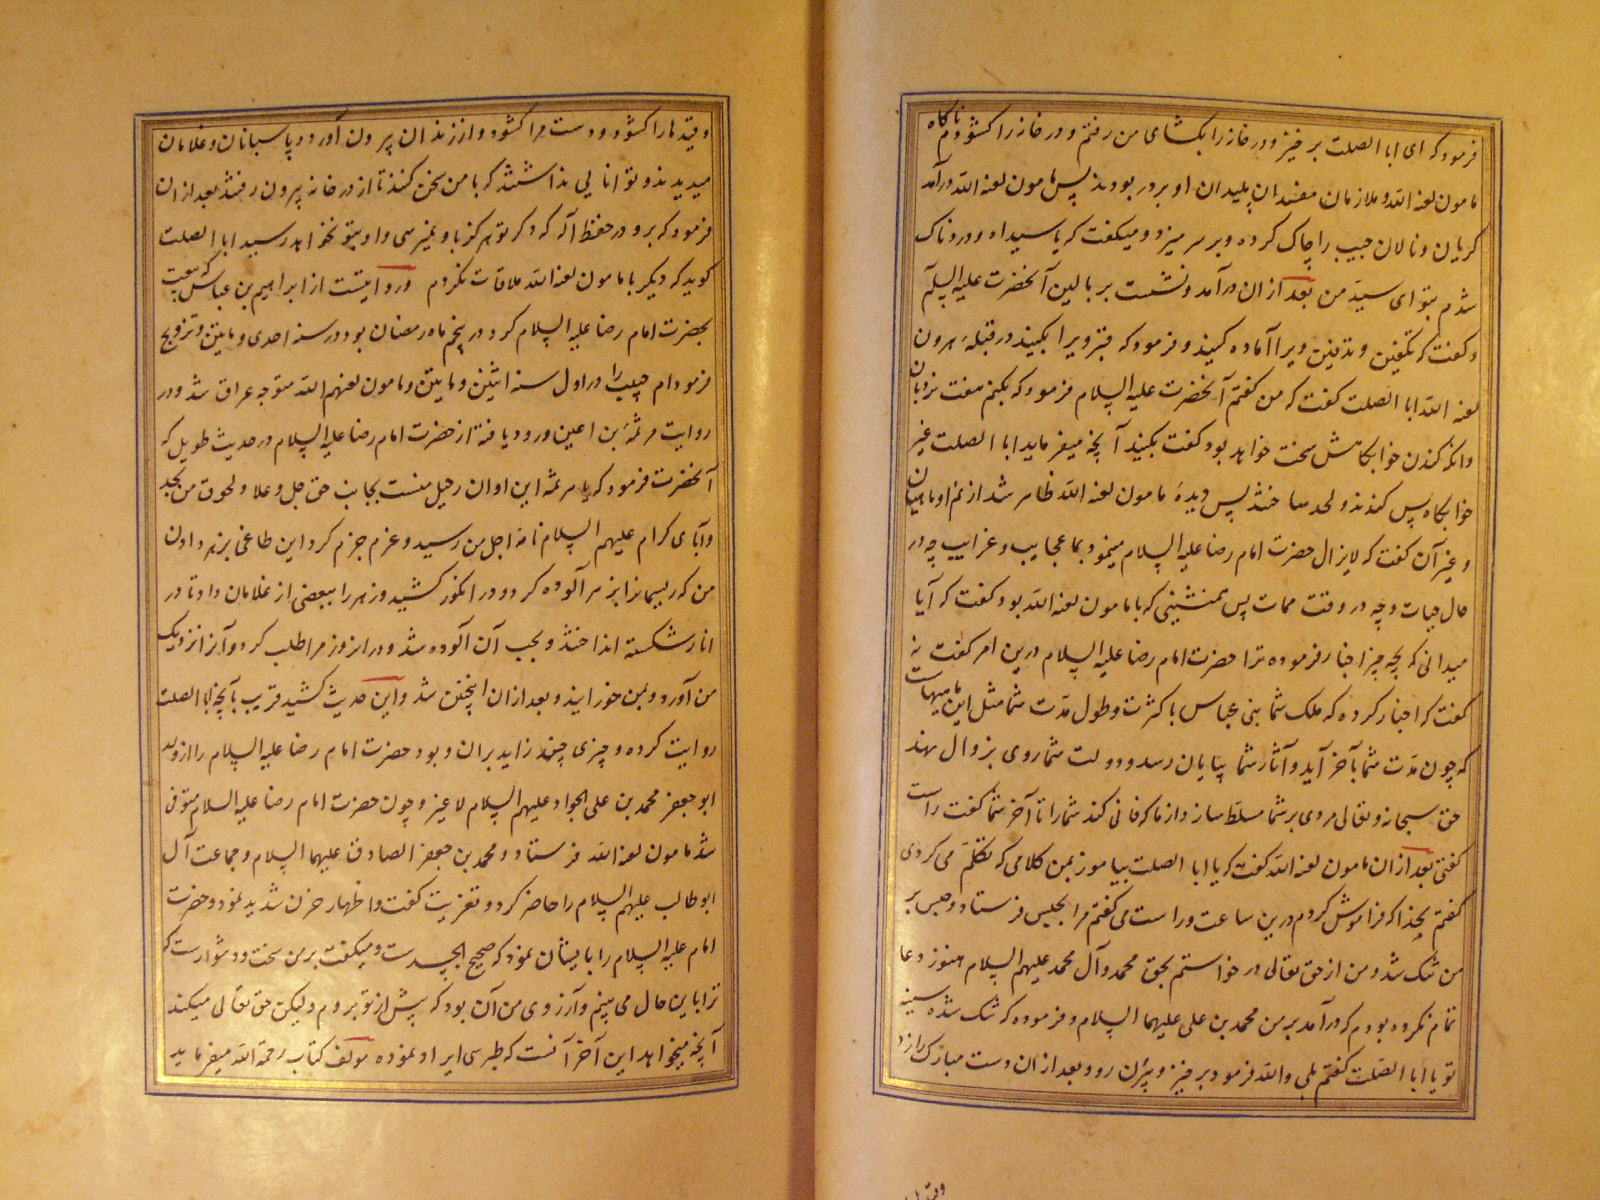 فرمود که ای ابا الصلت برخیز و در خانه را بکشای من رفتم و در خانه را کشودم ناکاه
مامون لعنه الله و ملازمان مفتدان پلیدان او بر در بودند پس مامون لعنه الله درآمد
کریان و نالان جیب را چاک کرده و بر سر میزد و میکفت که یا سیداه و دردناک
شدم بتو ای سید من بعد ازان درآمد و نشست بر بالین آنحضرت علیه السلام
و کفت که تکفین و تدفین ویرا آماده کنید و فرمود که قبر ویرا بکنید در قبله هرون
لعنه الله ابا الصلت کفت که من کفتم آنحضرت علیه السلام فرمود که بکنم هفت نردبان
و انکه کندن خوابکاهش سخت خواهد بود کفت بکنید آنچه میفرماید ابا الصلت غیر
خوابکاه پس کندند و لحد ساختند پس دیده مامون لعنه الله ظاهر شد از نم او ماهیان
و غیر آن کفت که لایزال حضرت امام رضا علیه السلام مینمود بما عجایب و غرایب چه در
حال حیات و چه در وقت ممات پس همنشینی که با مامون لعنه الله بود کفت که آیا
میدانی که بچه چیز اخبار فرموده ترا حضرت امام رضا علیه السلام درین امر کفت نه
کفت که اخبار کرده که ملک شما بنی عباس با کثرت و طول مدت شما مثل این ماهیهاست
که چون مدت شما بآخر آید و آثار شما بپایان رسد و دولت شما روی بزوال نهد
حق سبحانه و تعالی مردی بر شما مسلط سازد از ما که فانی کند شما را تا آخر شما کفت راست
کفتی بعد ازان مامون لعنه الله کفت که یا ابا الصلت بیاموز بمن کلامی که تکلم می کردی
کفتم بخدا که فراموش کردم درین ساعت و راست می کفتم مرا بحبس فرستاد و حبس بر
من تنک شد و من از حق تعالی درخواستم بحق محمد و آل محمد علیهم السلام هنوز دعا
تمام نکرده بودم که درآمد بر من محمد بن علی علیهما السلام و فرموده که تنک شده سینه
تو یا ابا الصلت کفتم بلی والله فرمود برخیز و بیرون رو و بعد ازان دست مبارک را زد
و قیدها را کشود و دست مرا کشود و از زندان بیرون آورد و پاسبانان و غلامان
میدیدند و توانایی نداشتند که با من سخن کنند تا از در خانه بیرون رفتند بعد ازان
فرمود که برو در حفظ اله که دکر تو هرکز باو نمیرسی و او بتو نخواهد رسید ابا الصلت
کوید که دیکر با مامون لعنه الله ملاقات نکردم و روایتست از ابراهیم بن عباس که بیعت
بحضرت امام رضا علیه السلام کرد در پنجم ماه رمضان بود در سنه احدی و مایتین و تزویج
فرمود ام حبیب را در اول سنه اثنین و مایتین و مامون لعنهم الله متوجه عراق شد و در
روایت هرثمه بن اعین ورود یافته از حضرت امام رضا علیه السلام در حدیث طویل که
آنحضرت فرمود که یا هرثمه این اوان رحیل منست بجانب حق جل و علا و لحوق من بجد
و آبای کرام علیهم السلام نامه اجل من رسید و عزم جزم کرد این طاغی بزهر دادن
من که ریسمان را بزهر آلوده کرد و در انکور کشید و زهر را ببعضی از غلامان داد تا در
انار شکسته انداختند و بحب آن آلوده شد و در انروز مرا طلب کرد و آنرا نزدیک
من آورد و بمن خورانید و بعد ازان اینچنین شد و این حدیث کشید قریب بآنچه ابا الصلت
روایت کرده و چیزی چند زاید بران و بود حضرت امام رضا علیه السلام را از ولد
ابو جعفر محمد بن علی الجواد علیهم السلام لا غیر و چون حضرت امام رضا علیه السلام متوفی
شد مامون لعنه الله فرستاد و محمد بن جعفر الصادق علیهما السلام و جماعت آل
ابو طالب علیهم السلام را حاضر کرد و تعزیت کفت و اظهار حزن شدید نمود و حضرت
امام علیه السلام را بایشان نمود که صحیح الجسد است و میکفت بر من سخت و دشوارست که
ترا باین حال می بینم و آرزوی من آن بود که پیش از تو بروم و لیکن حق تعالی میکند
آنچه میخواهد این آخر آنست که طبرسی ایراد نموده مولف کتاب رحمة الله میفرماید